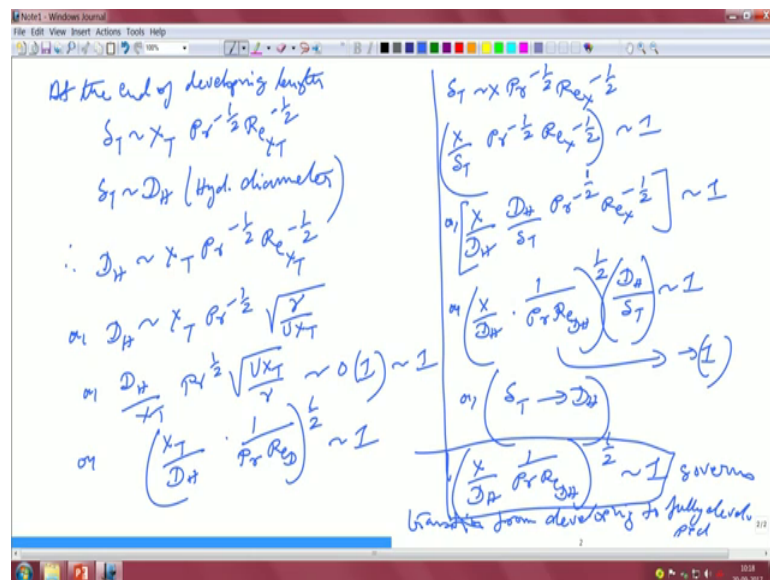 Note1 - Windows Journal
File Edit View Insert Actions Tools Help
100%
At the end of developing length
δ_T ~ x_T Pr^{-1/2} Re_{x_T}^{-1/2}
δ_T ~ D_H (Hyd. diameter)
∴ D_H ~ x_T Pr^{-1/2} Re_{x_T}^{-1/2}
or, D_H ~ x_T Pr^{-1/2} √(γ/Ux_T)
or, D_H/x_T Pr^{1/2} √(Ux_T/γ) ~ O(1) ~ 1
or (x_T/D_H · 1/(Pr Re_D))^{1/2} ~ 1
δ_T ~ x Pr^{-1/2} Re_x^{-1/2}
(x/δ_T Pr^{-1/2} Re_x^{-1/2}) ~ 1
or, [x/D_H D_H/δ_T Pr^{-1/2} Re_x^{-1/2}] ~ 1
or (x/D_H · 1/(Pr Re_{D_H}))^{1/2} (D_H/δ_T) ~ 1
→ (1)
or, (δ_T → D_H)
(x/D_H 1/(Pr Re_{D_H}))^{1/2} ~ 1 governs
from developing to fully develo
ped
2
2/2
10:18